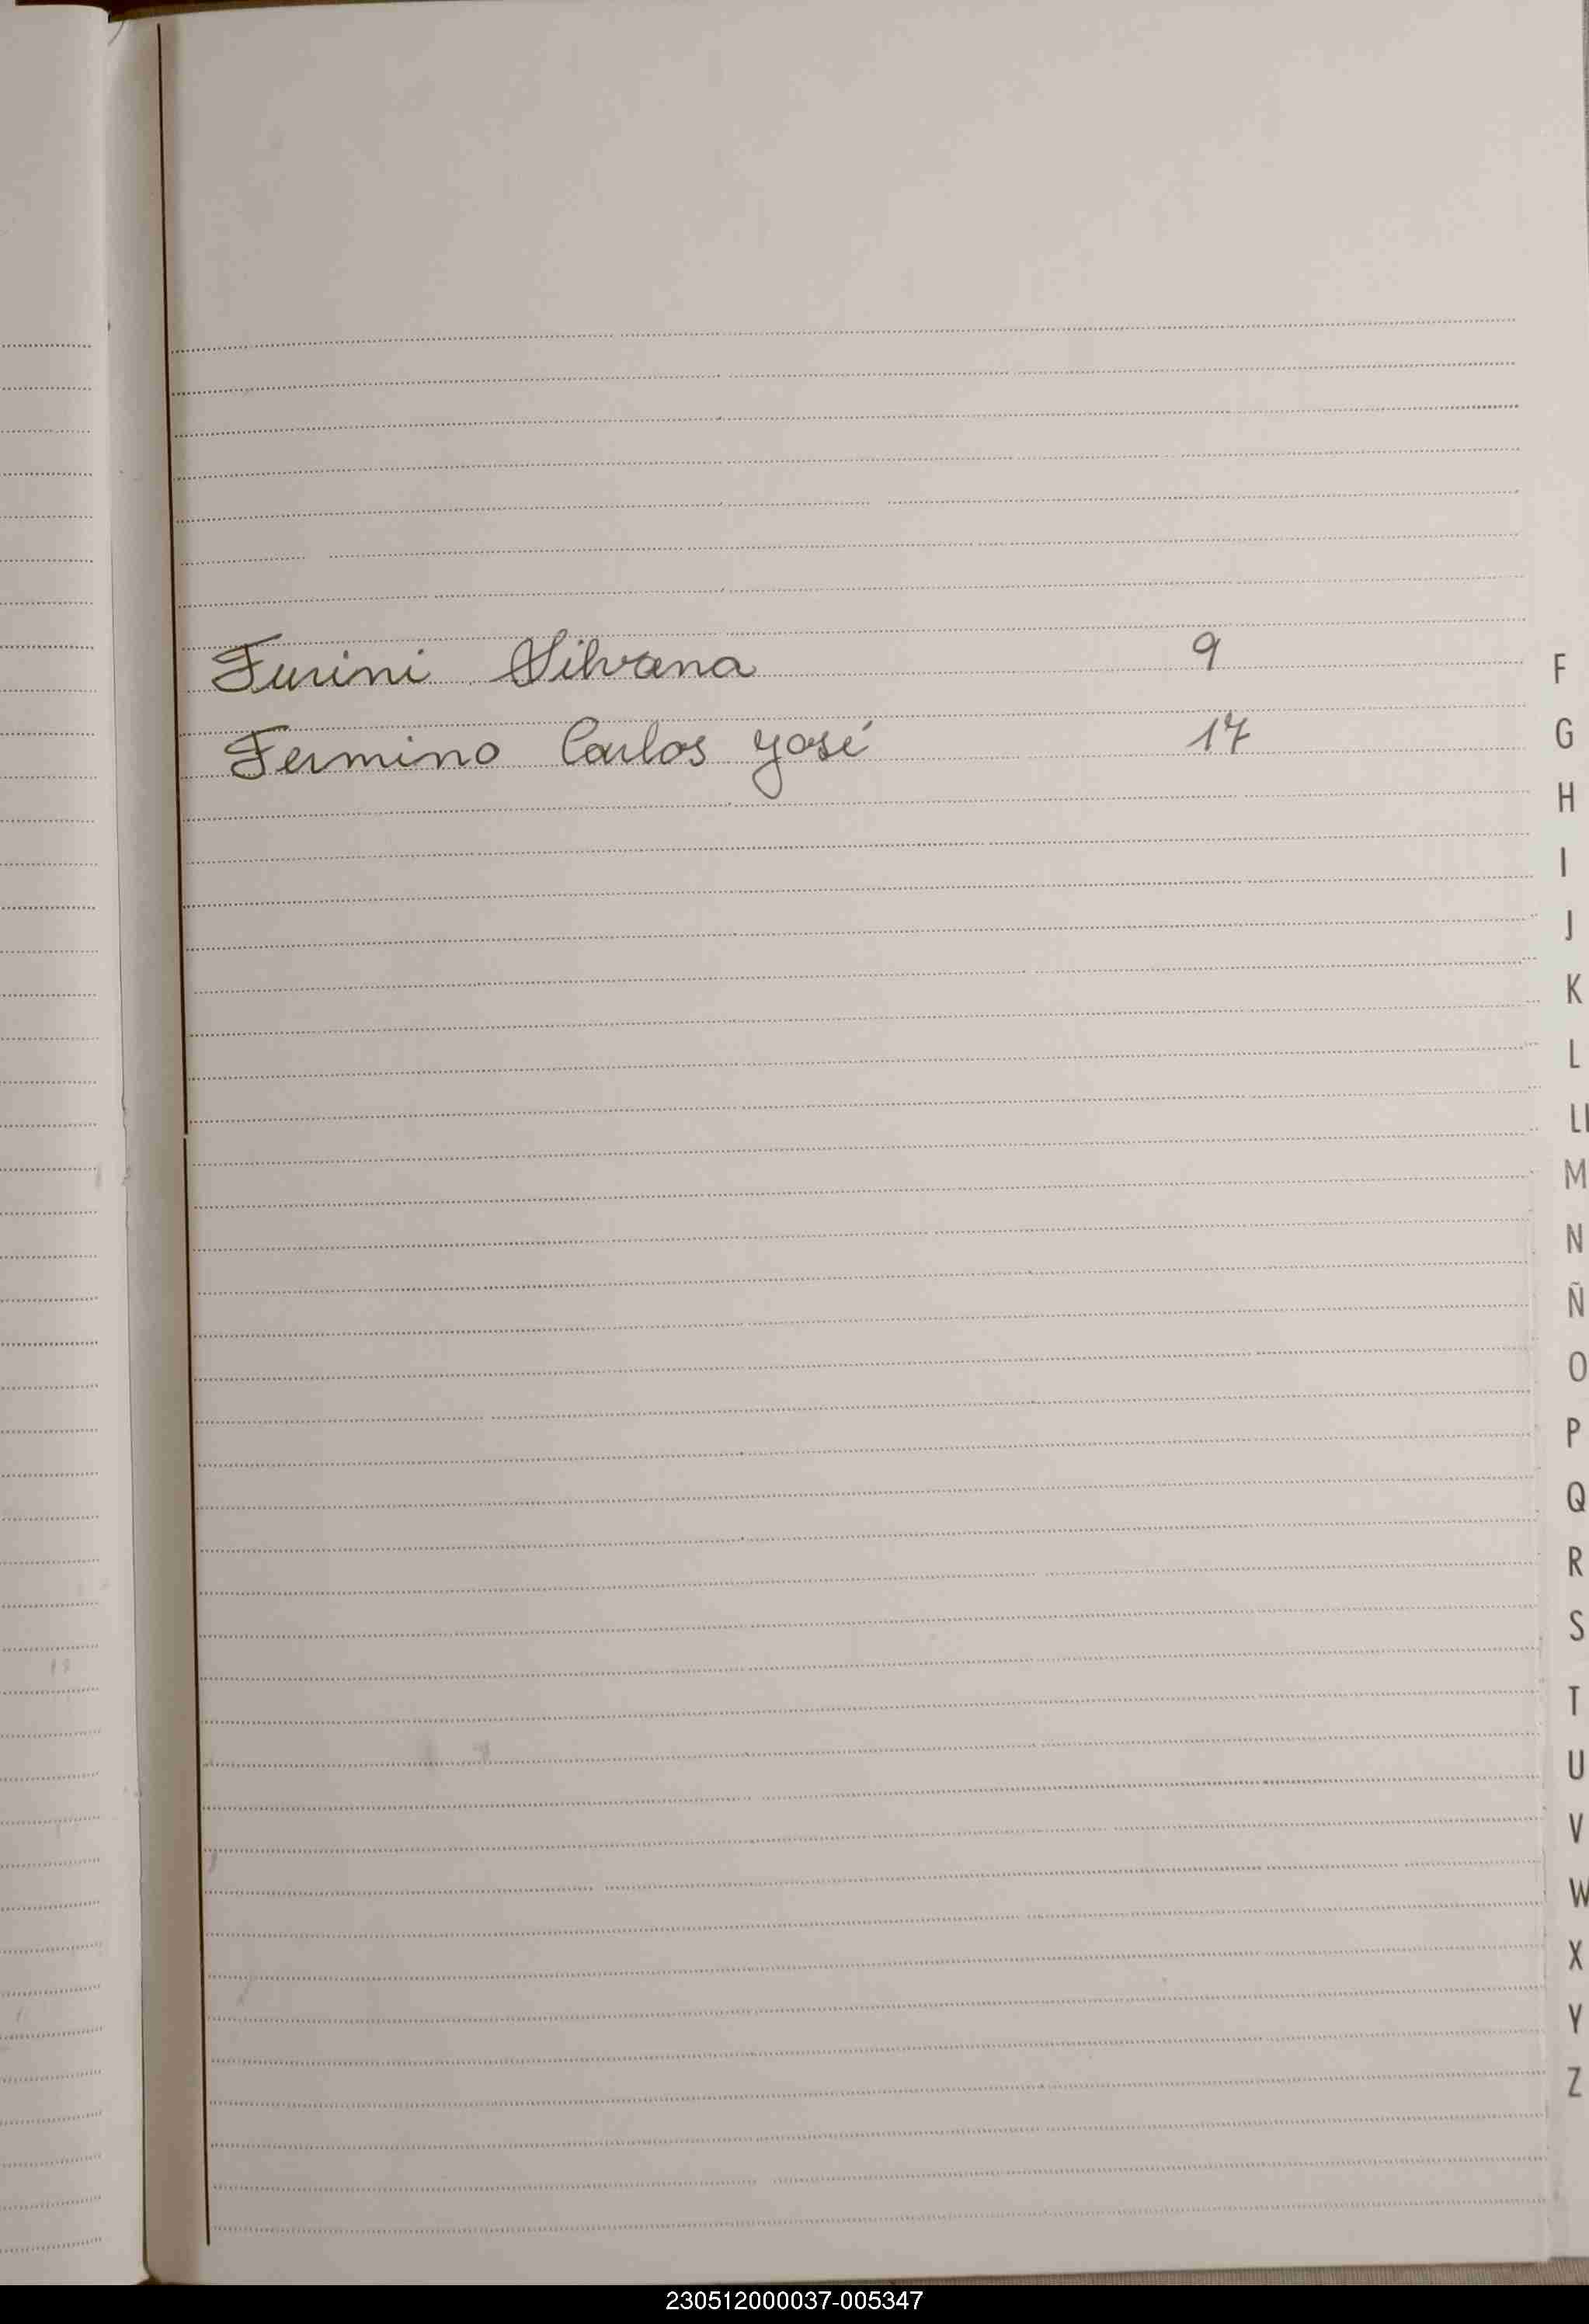 Furini Silvana 9
Fermino Carlos José 17
F
G
H
I
J
K
L
Ll
M
N
Ñ
O
P
Q
R
S
T
U
V
W
X
Y
Z
230512000037-005347